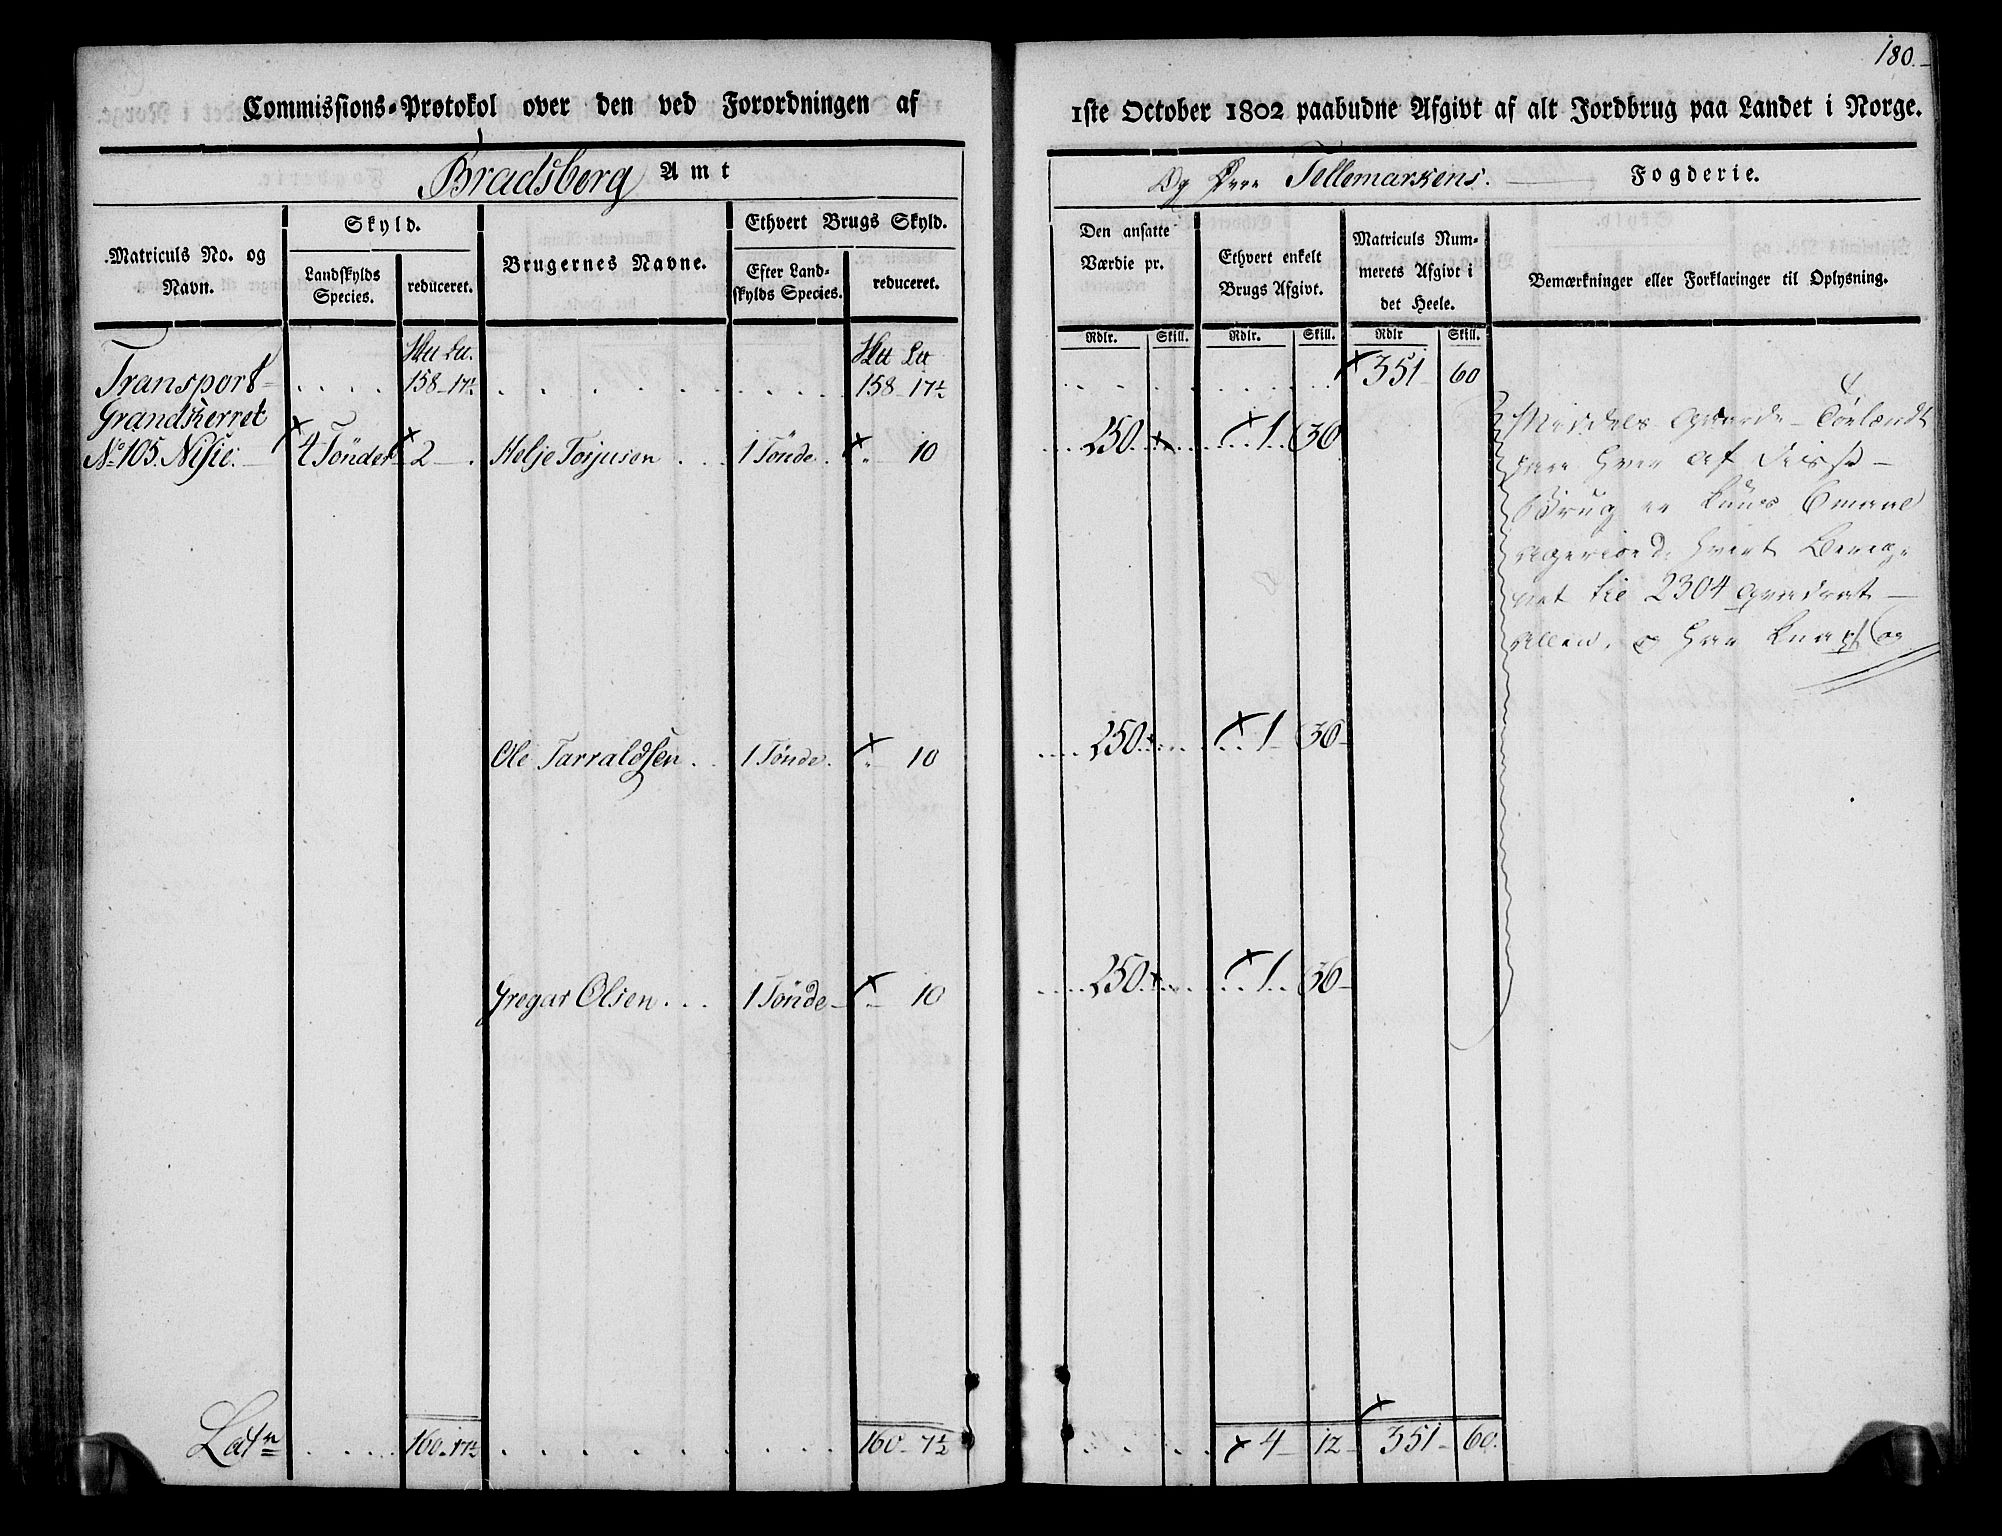 180.
Commissions-Protokol over den ved Forordningen af
1ste October 1802 paabudne Afgivt af alt Jordbrug paa Landet i Norge.
Bradsberg Amt
Og Øvre Tellemarkens. Fogderie.
Matriculs No. og
Navn.
Skyld.
Landskylds
Species.
reduceret.
Brugernes Navne.
Ethvert Brugs Skyld.
Efter Land-
skylds Species.
reduceret.
Den ansatte
Værdie pr.
Rdlr. Skill.
Ethvert enkelt
Brugs Afgivt.
Rdlr. Skill.
Matriculs Num-
merets Afgivt i
det Heele.
Rdlr Skill.
Bemærkninger eller Forklaringer til Oplysning.
Transport 158 - 17½ 158 - 17½ 351 60
Grandsherret
No 105. Nisie. 4 Tønder 2 Helje Torjusen 1 Tønde. " 10 250. 1 36
Ole Tarraldsen 1 Tønde. " 10 250. 1 36
Gregar Olsen 1 Tønde " 10 250. 1 36
Middels Gaarde
hver af disse
Brug er
2304 Qvadrat
Allen.
Lat 160. 17½ 160. 7½ 4 12 351 60.